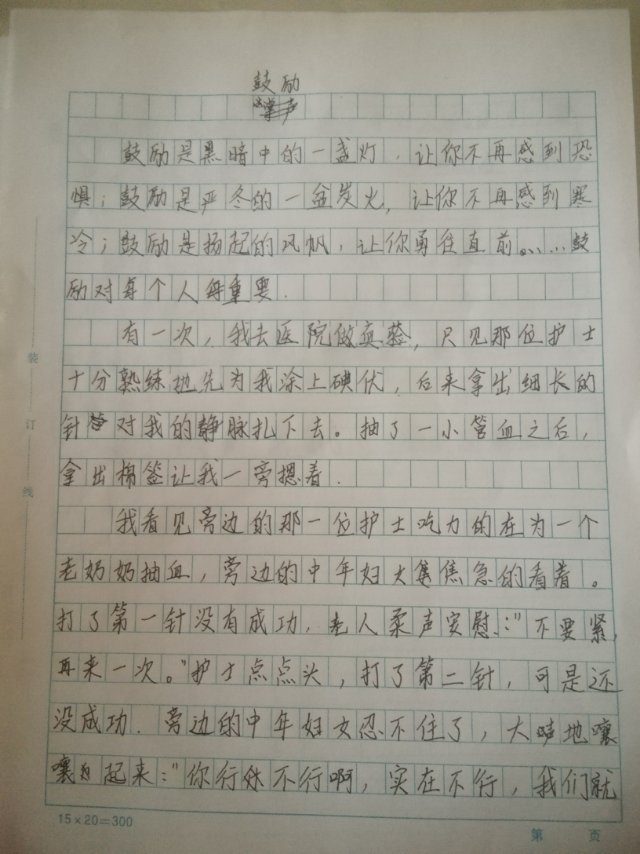 鼓励
鼓励是黑暗中的一盏灯，让你不再感到恐
惧；鼓励是严冬的一盆炭火，让你不再感到寒
冷；鼓励是扬起的风帆，让你勇往直前……鼓
励对每个人每重要.
有一次，我去医院做真验，只见那位护士
十分熟练地先为我涂上碘伏，后来拿出细长的
针对我的静脉扎下去。抽了一小管血之后，
拿出棉签让我一旁摁着.
我看见旁边的那一位护士吃力的在为一个
老奶奶抽血，旁边的中年妇大焦急的看着。
打了第一针没有成功，老人柔声安慰：“不要紧，
再来一次。”护士点点头，打了第二针，可是还
没成功.旁边的中年妇女忍不住了，大声地嚷
嚷起来：“你行你不行啊，实在不行，我们就
装
订
线
15×20=300
第 页